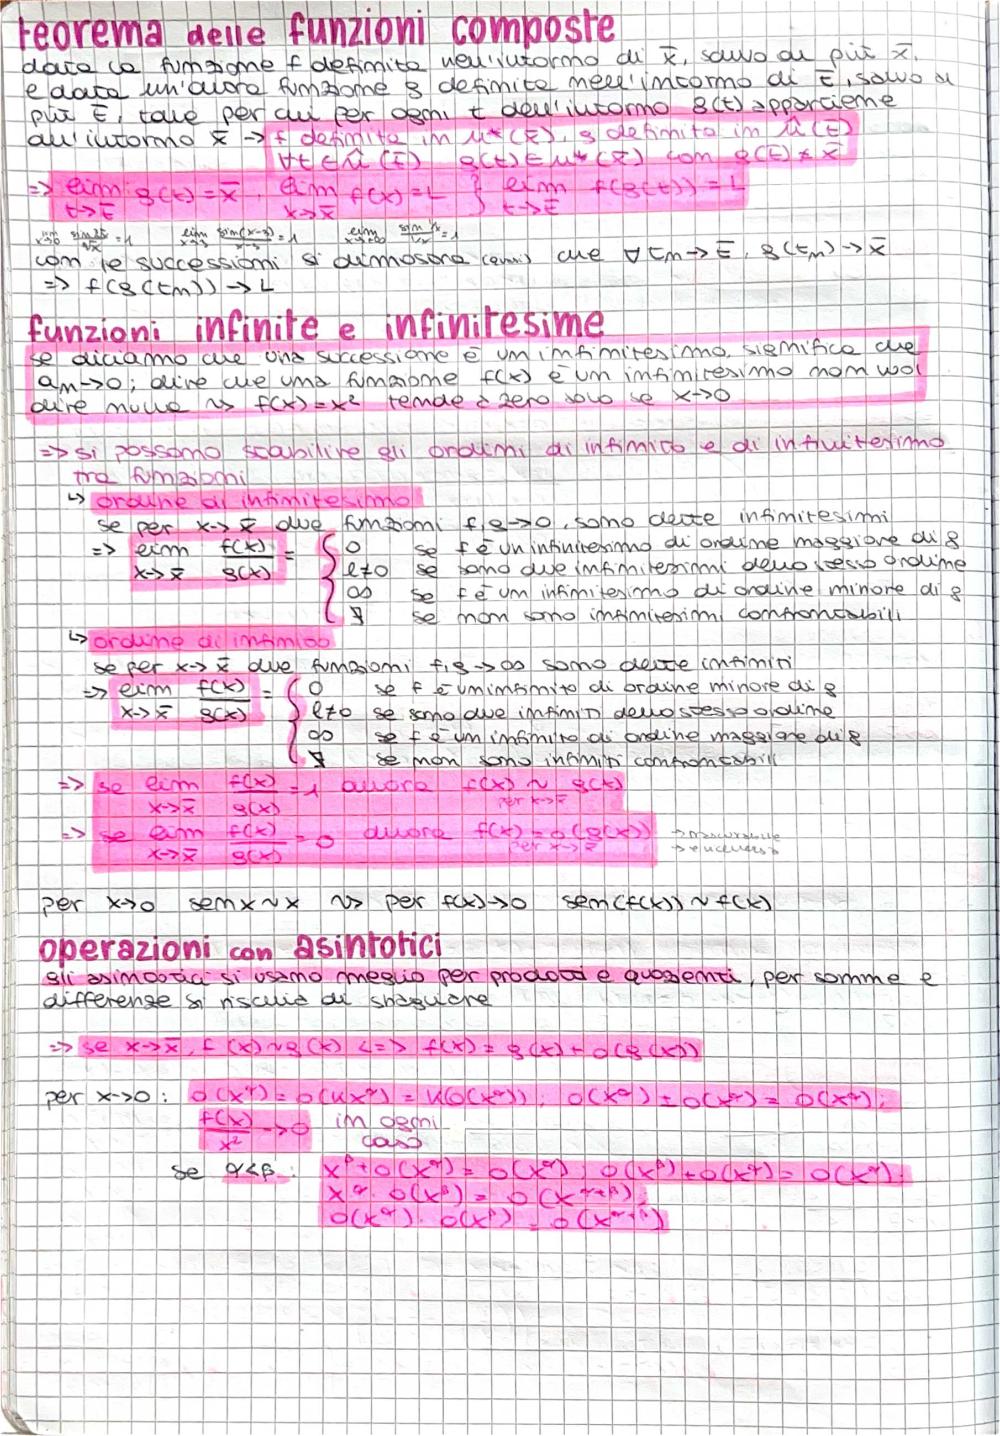 teorema delle funzioni composte
data la funzione f definita nell'intorno di x̄, salvo al più x̄,
e data un'altra funzione g definita nell'intorno di t̄, salvo al
più t̄, tale per cui per ogni t dell'intorno g(t) appartiene
all'intorno x̄ → f definita in u*(x̄), g definita in û(t̄)
∀t∈û(t̄) g(t)∈u*(x̄) con g(t) ≠ x̄
=> lim t→t̄ g(t) = x̄, lim x→x̄ f(x) = L } lim t→t̄ f(g(t)) = L
lim x→0 sin2x/2x = 1 lim x→3 sin(x-3)/x-3 = 1 lim x→∞ sin 1/x / 1/x = 1
con le successioni si dimostra che ∀ tn→t̄, g(tn)→x̄
=> f(g(tn))→L
funzioni infinite e infinitesime
se diciamo che una successione è un infinitesimo, significa che
an→0; dire che una funzione f(x) è un infinitesimo non vuol
dire nulla ~> f(x) = x² tende a zero solo se x→0
=> si possono stabilire gli ordini di infinito e di infinitesimo
tra funzioni
↳ ordine di infinitesimo
se per x→x̄ due funzioni f,g→0, sono dette infinitesimi
=> lim x→x̄ f(x)/g(x) = { 0 se f è un infinitesimo di ordine maggiore di g
ℓ≠0 se sono due infinitesimi dello stesso ordine
∞ se f è un infinitesimo di ordine minore di g
∄ se non sono infinitesimi confrontabili
↳ ordine di infinito
se per x→x̄ due funzioni f,g→∞ sono dette infiniti
=> lim x→x̄ f(x)/g(x) = { 0 se f è un infinito di ordine minore di g
ℓ≠0 se sono due infiniti dello stesso ordine
∞ se f è un infinito di ordine maggiore di g
∄ se non sono infiniti confrontabili
=> se lim x→x̄ f(x)/g(x) = 1 allora f(x) ~ g(x) per x→x̄
=> se lim x→x̄ f(x)/g(x) = 0 allora f(x) = o(g(x)) per x→x̄ → trascurabile
per x→0 senx~x ~> per f(x)→0 sen(f(x))~f(x)
operazioni con asintotici
gli asintotici si usano meglio per prodotti e quozienti, per somme e
differenze si rischia di sbagliare
=> se x→x̄, f(x)~g(x) <=> f(x) = g(x) + o(g(x))
per x→0: o(x^α) = o(kx^α) = k(o(x^α)); o(x^α) ± o(x^α) = o(x^α);
f(x)/x² → 0 in ogni
caso
se α<β: x^β + o(x^α) = o(x^α); o(x^β) + o(x^α) = o(x^α);
x^α · o(x^β) = o(x^α+β);
o(x^α) · o(x^β) = o(x^α+β)